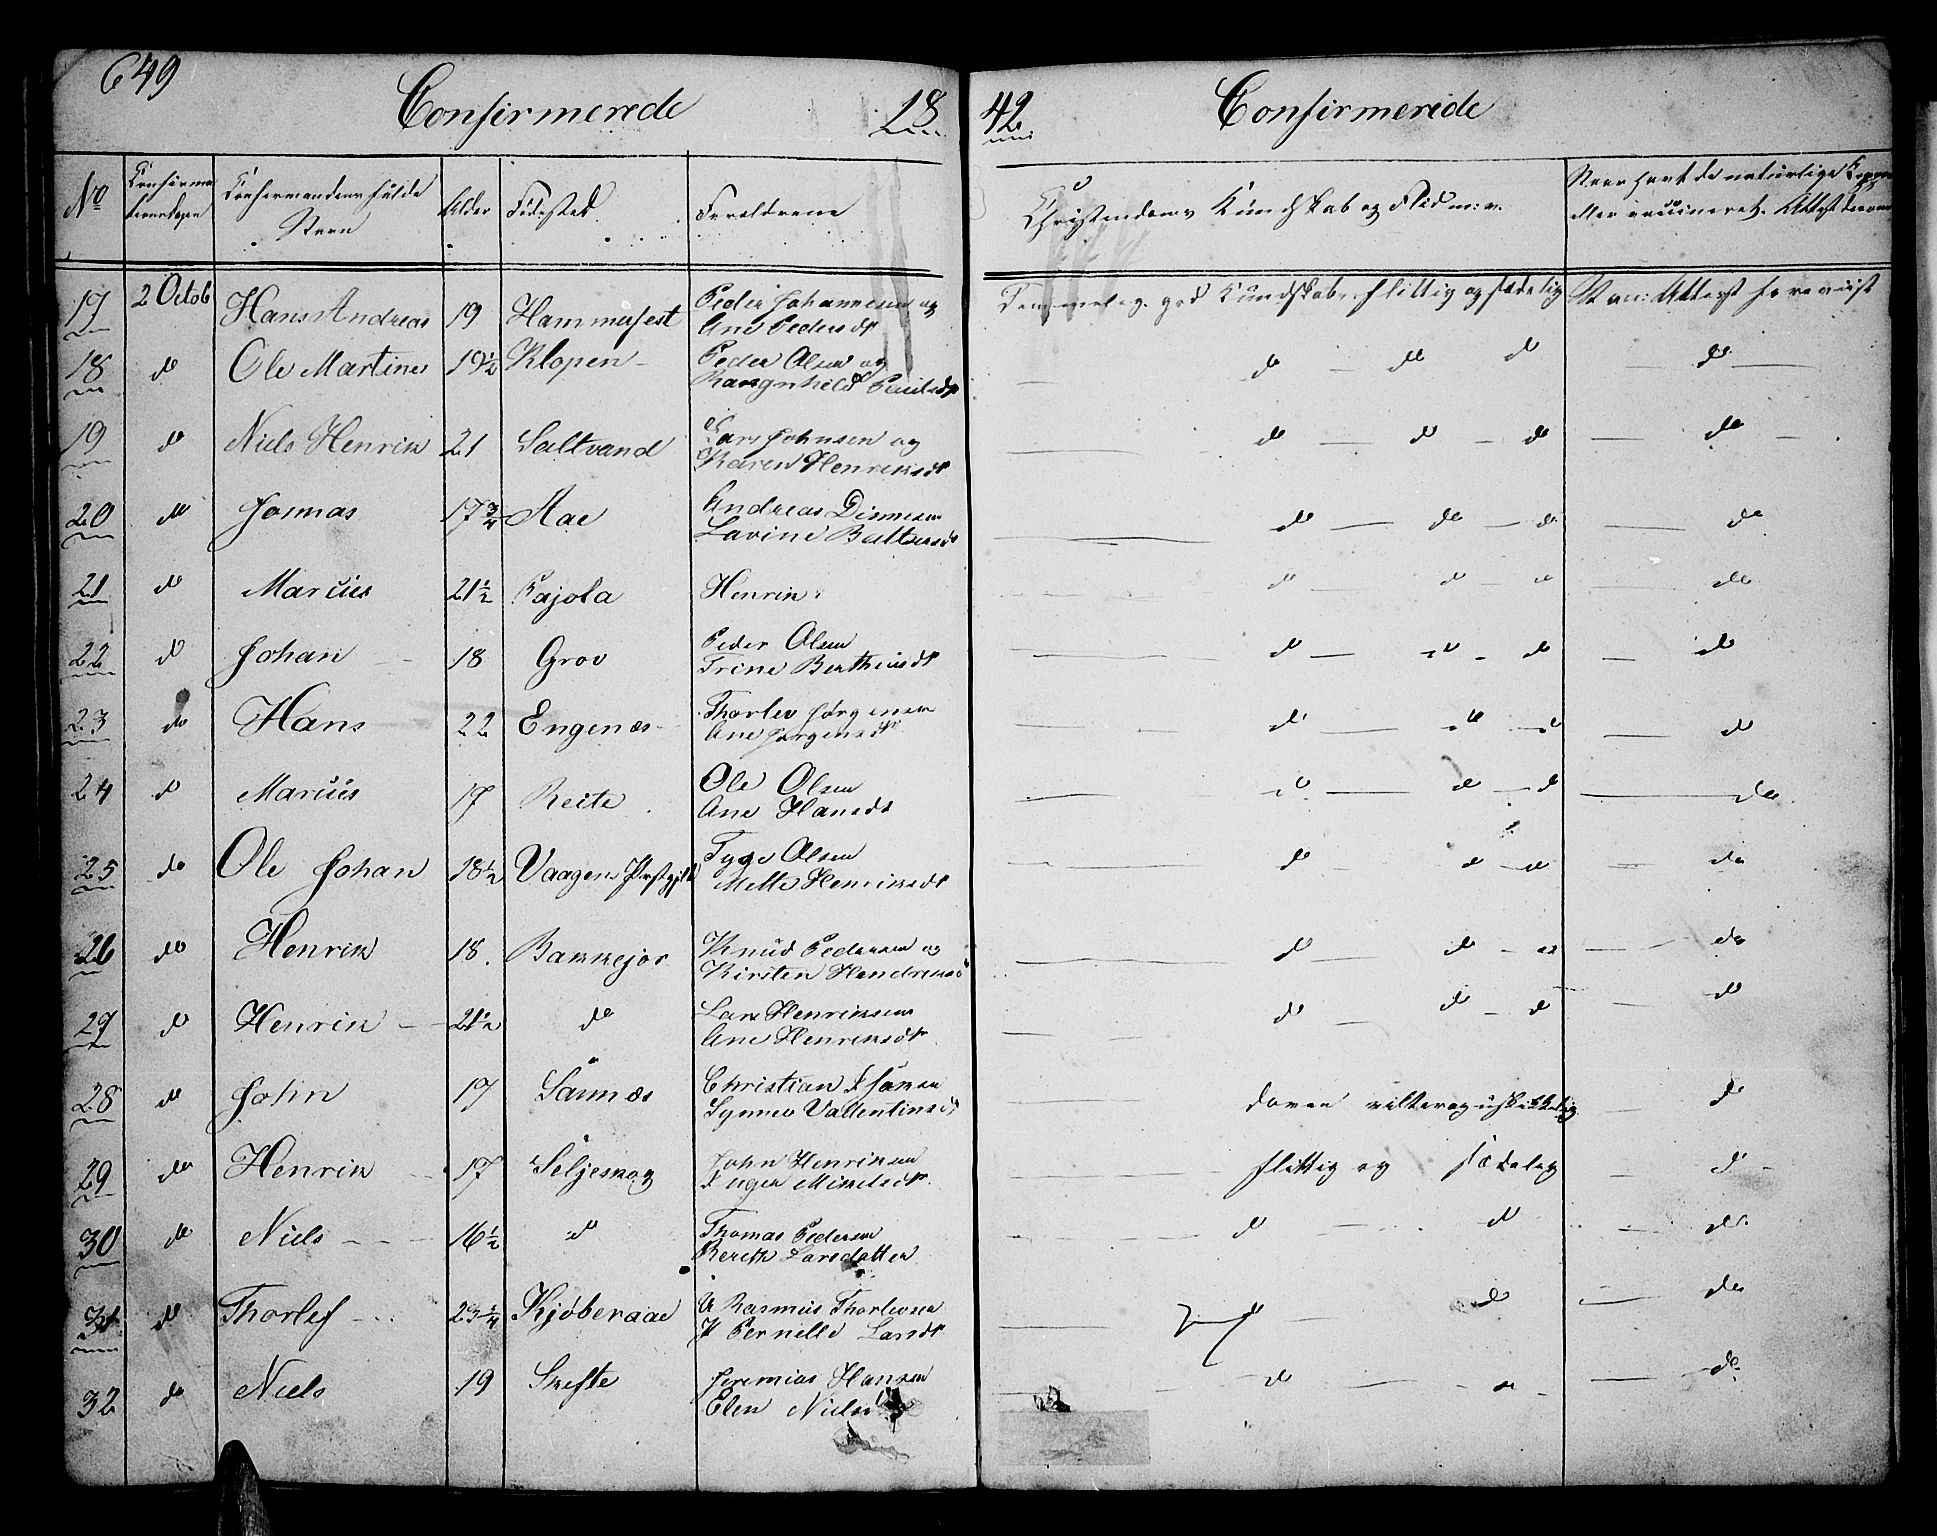 649
Confirmerede 18
42 Confirmerede
No Confirmationsdagen Confirmandens fulde Navn Alder Fødested Forældrene Christendoms Kundskab og Flid m: v. Naar havt de naturlige Kopper eller vaccineret. Attest derom
17 2 Octob Hans Andreas 19 Hammerfest Peder Johannesen og Ane Pedersdt Temmelig god Kundskab. flittig og sædelig Vac: Attest foreviist
18 do Ole Martines 19½ Klopen Peder Olsen og Rangnhild Paulsdt do do do do
19 do Niels Henrik 21 Saltvand Lars Johnsen og Karen Henriksdt do do do do
20 do Jonnas 17¾ Aae Andreas Dinnesen Lavine Baltsersdt do do do do
21 do Marcus 21½ Pajola Henrik do do do do
22 do Johan 18 Grov Peder Olsen Trine Berthinsdt do do do do
23 do Hans 22 Engenæs Thorlev Jørgensen Ane Jørgensdt do do do do
24 do Marcus 17 Reite Ole Olsen Ane Hansdt do do do do
25 do Ole Johan 18½ Vaagens Præstgjeld Tyge Olsen Mette Henriksdt do do do do
26 do Henrik 18. Bakkejor Knud Pedersen og Kirsten Hendriksd do do do do
27 do Henrik 21½ do Lars Henriksen Ane Henriksdt do do do do
28 do John 17 Sannæs Christian Synnev Vallentinsdt doven do
29 do Henrik 17 Seljeskog John Henriksen Inger Mikkelsdt flittig og sædelig do
30 do Niels 16½ do Thomas Pedersen Bereth Larsdatter do do do
31 do Thorlef 23¾ Kjøberaae U Rasmus Thorlevsen P Pernille Larsdt do do do
32 do Niels 19 Skefte Jeremias Hansen Elen Niels do do do